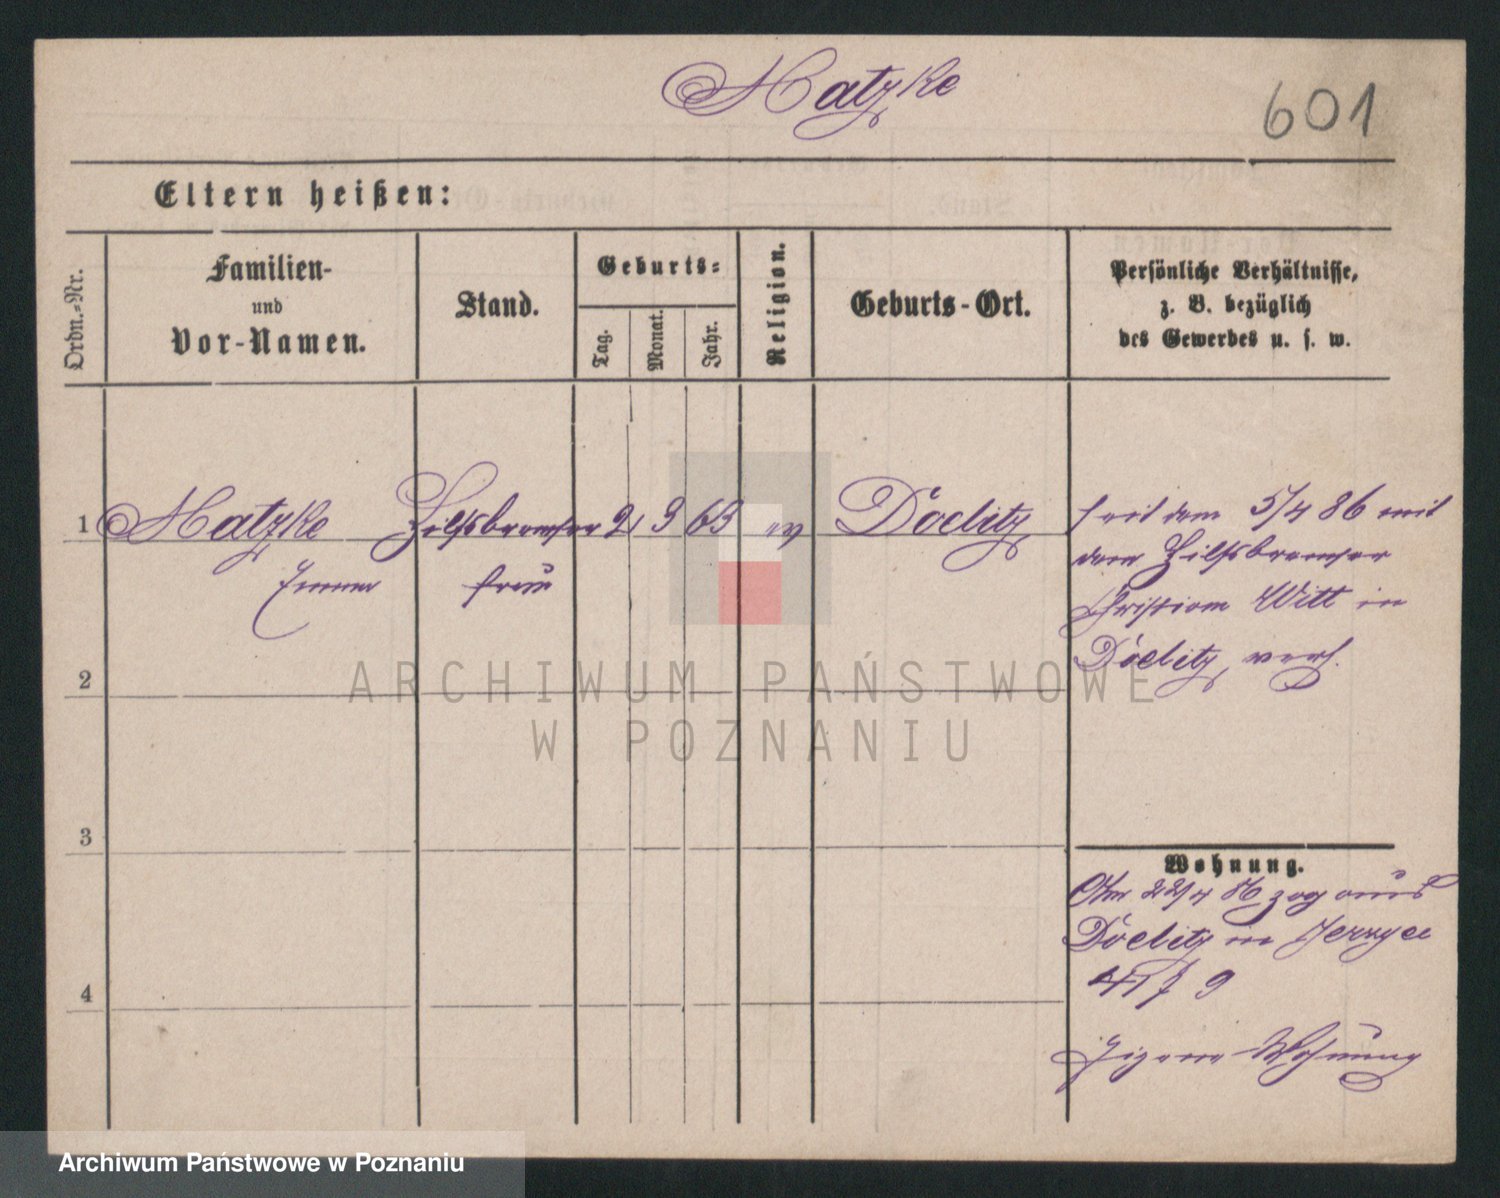 Matzke
601
Eltern heißen:
Ordn.-Nr.
Familien-
und
Vor-Namen.
Stand.
Geburts-
Tag.
Monat.
Jahr.
Religion.
Geburts-Ort.
Persönliche Verhältnisse,
z. B. bezüglich
des Gewerbes u. s. w.
1 Matzke Hilfsbremser 2 3 63 ev Döelitz
Emma frau
seit dem 5/4 86 mit
dem Hilfsbremser
Christian Witt in
Döelitz, verh.
2
3
4
Wohnung.
Am 22/4 86 zog aus
Döelitz in Jerzyce
41 J 9
Eigene Wohnung
ARCHIWUM PAŃSTWOWE
W POZNANIU
Archiwum Państwowe w Poznaniu